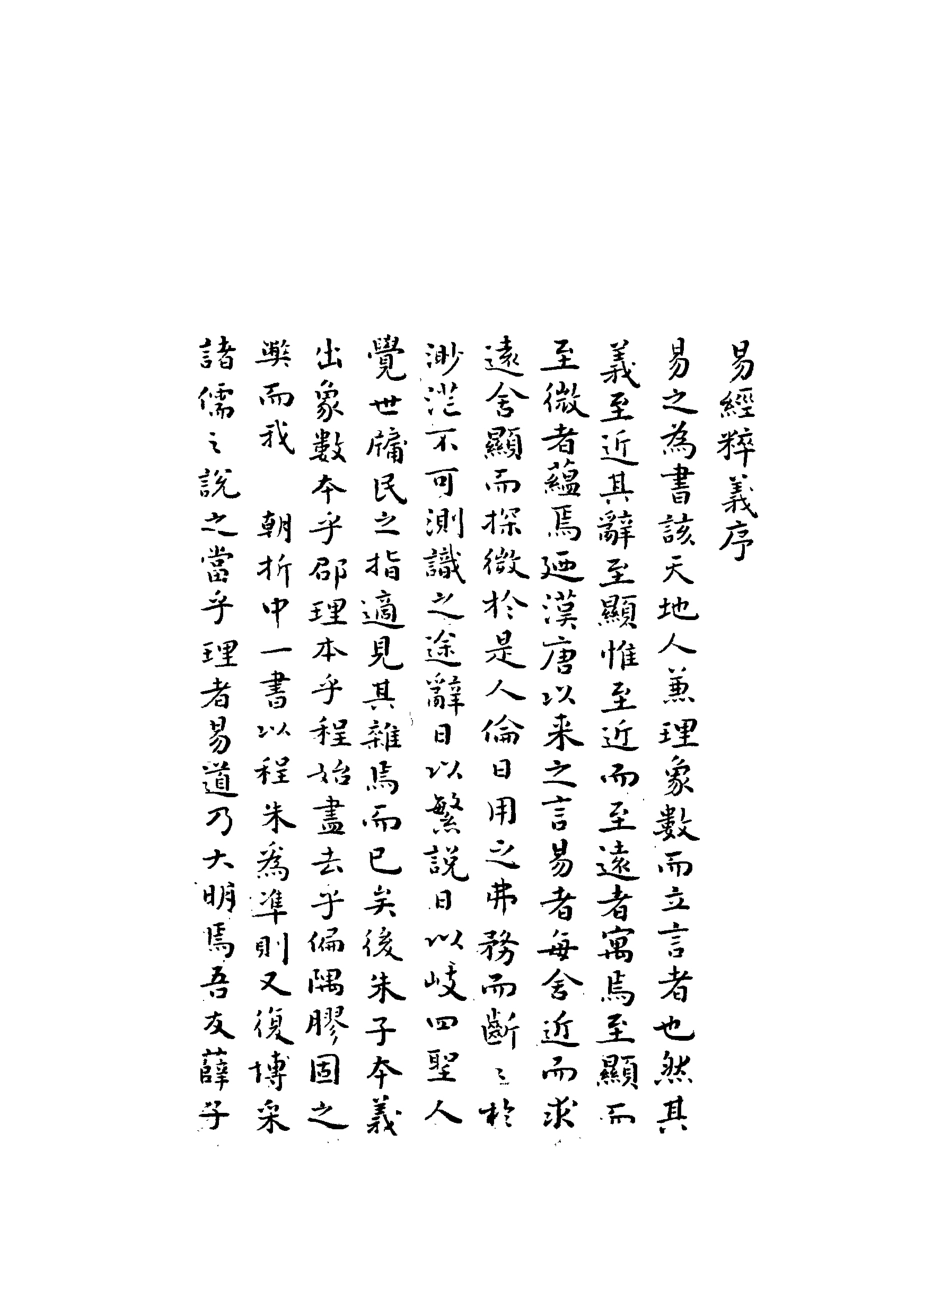 易經粹義序
易之為書該天地人兼理象數而立言者也然其
義至近其辭至顯惟至近而至遠者寓焉至顯而
至微者蘊焉廼漢唐以来之言易者每舍近而求
遠舍顯而探微於是人倫日用之弗務而斷〻於
渺茫不可測識之途辭日以繁說日以岐四聖人
覺世牖民之指適見其雜焉而已矣後朱子本義
出象數本乎邵理本乎程始盡去乎偏隅膠固之
獘而我　朝折中一書以程朱為準則又復博采
諸儒之說之當乎理者易道乃大明焉吾友薛子